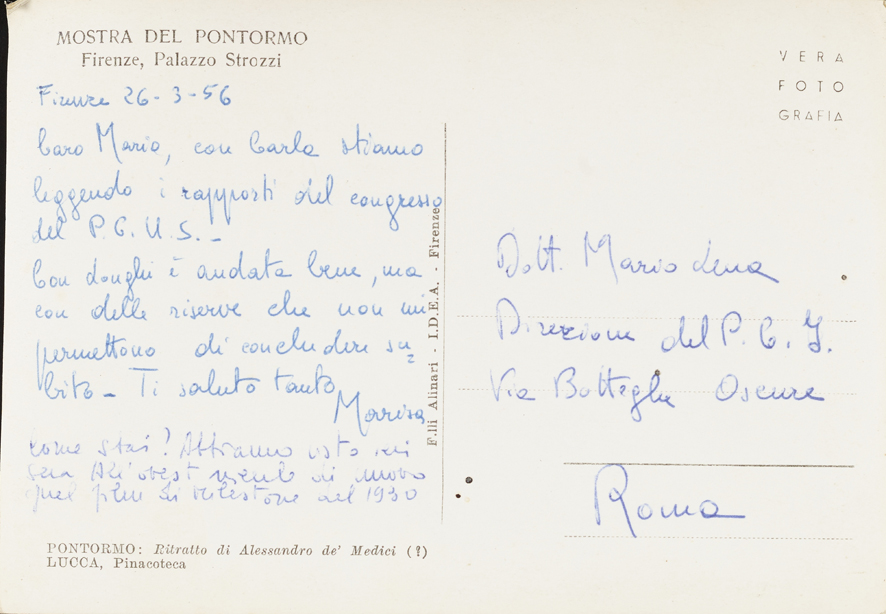 MOSTRA DEL PONTORMO
Firenze, Palazzo Strozzi
VERA
FOTO
GRAFIA
Firenze 26-3-56
Caro Mario, con Carla stiamo
leggendo i rapporti del congresso
del P.C.U.S. -
Con Longhi è andata bene, ma
con delle riserve che non mi
permettono di concludere su=
bito - Ti saluto tanto
Marisa
Come stai? Abbiamo visto ieri
sera All'ovest niente di nuovo
quel film di Milestone del 1930
F.lli Alinari - I.D.E.A. - Firenze
Dott. Mario Lena
Direzione del P.C.I.
Via Botteghe Oscure
Roma
PONTORMO: Ritratto di Alessandro de' Medici (?)
LUCCA, Pinacoteca